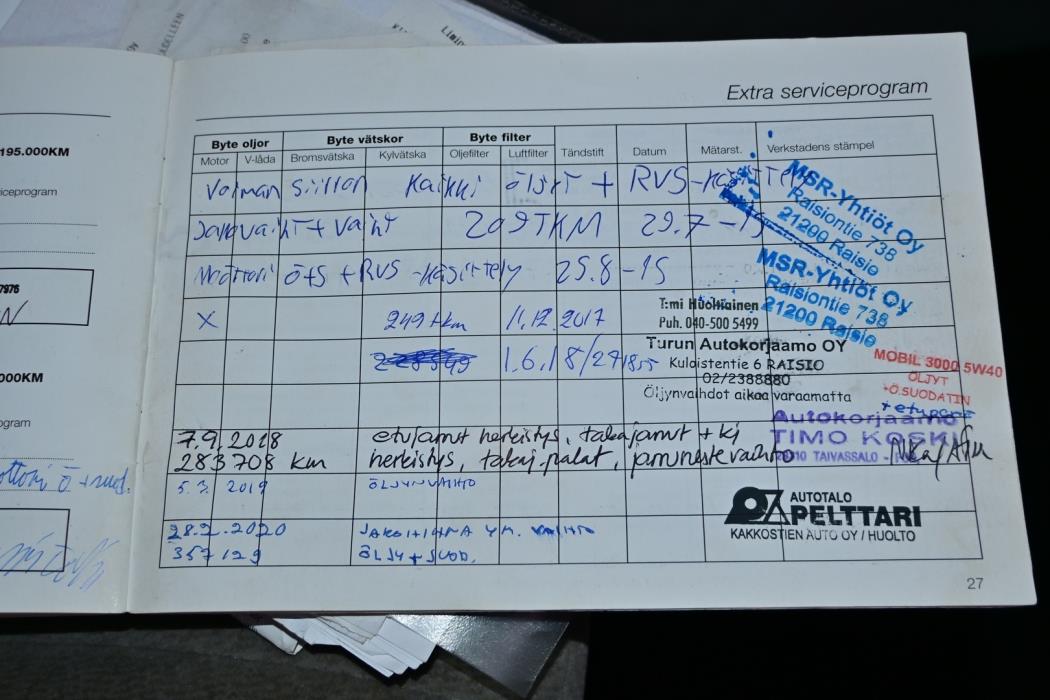 ASELLEEN
195.000KM
iceprogram
7976
000KM
ogram
Extra serviceprogram
Byte oljor Byte vätskor Byte filter
Motor V-låda Bromsvätska Kylvätska Oljefilter Luftfilter Tändstift Datum Mätarst. Verkstadens stämpel
Voiman siirron kaikki öljyt + RVS-käsittely
MSR-Yhtiöt Oy
Raisiontie 738
21200 Raisio
209TKM 29.7-15
Moottori öts + RVS-käsittely 25.8-15
MSR-Yhtiöt Oy
Raisiontie 738
21200 Raisie
X 249 tkm 11.12.2017
T:mi Huohtiainen
Puh. 040-500 5499
1.6.18/271855
Turun Autokorjaamo OY
Kuloistentie 6 RAISIO
02/2388880
Öljynvaihdot aikaa varaamatta
MOBIL 3000 5W40
ÖLJYT
+Ö.SUODATIN
7.9.2018 etujarrut herkistys, takajarrut + kj
283708 km herkistys, takaj.palat, jarrunestevaihto
Autokorjaamo
TIMO KOSKI
TAIVASSALO
5.3.2019 ÖLJYNVAIHTO
AUTOTALO
PELTTARI
KAKKOSTIEN AUTO OY / HUOLTO
28.2.2020 JAKOHIHNA YM. VAIHTO
357129 ÖLJY + SUOD.
27